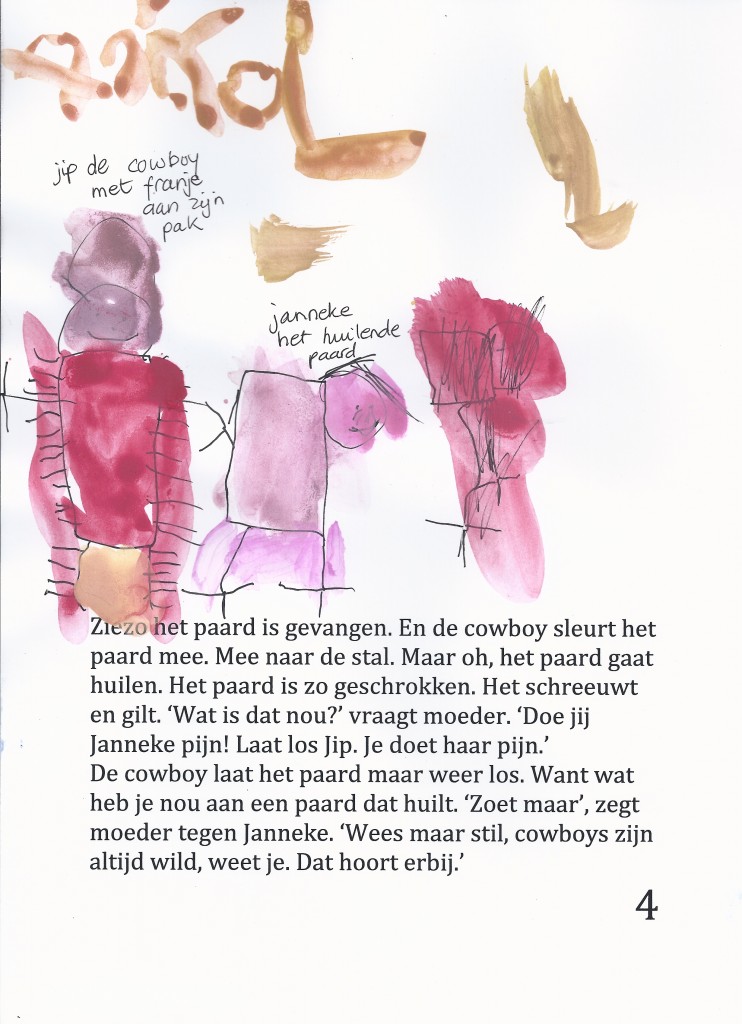 jip de cowboy
met franje
aan zijn
pak
janneke
het huilende
paard
Ziezo het paard is gevangen. En de cowboy sleurt het
paard mee. Mee naar de stal. Maar oh, het paard gaat
huilen. Het paard is zo geschrokken. Het schreeuwt
en gilt. ‘Wat is dat nou?’ vraagt moeder. ‘Doe jij
Janneke pijn! Laat los Jip. Je doet haar pijn.’
De cowboy laat het paard maar weer los. Want wat
heb je nou aan een paard dat huilt. ‘Zoet maar’, zegt
moeder tegen Janneke. ‘Wees maar stil, cowboys zijn
altijd wild, weet je. Dat hoort erbij.’
4